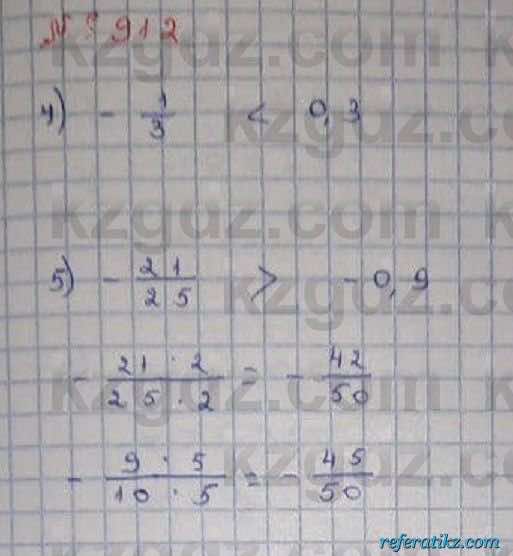 № 912
4) - 1/3 < 0,3
5) - 21/25 > - 0,9
- 21 · 2 / 25 · 2 = - 42/50
- 9 · 5 / 10 · 5 = - 45/50
kzguz.com
referatikz.com